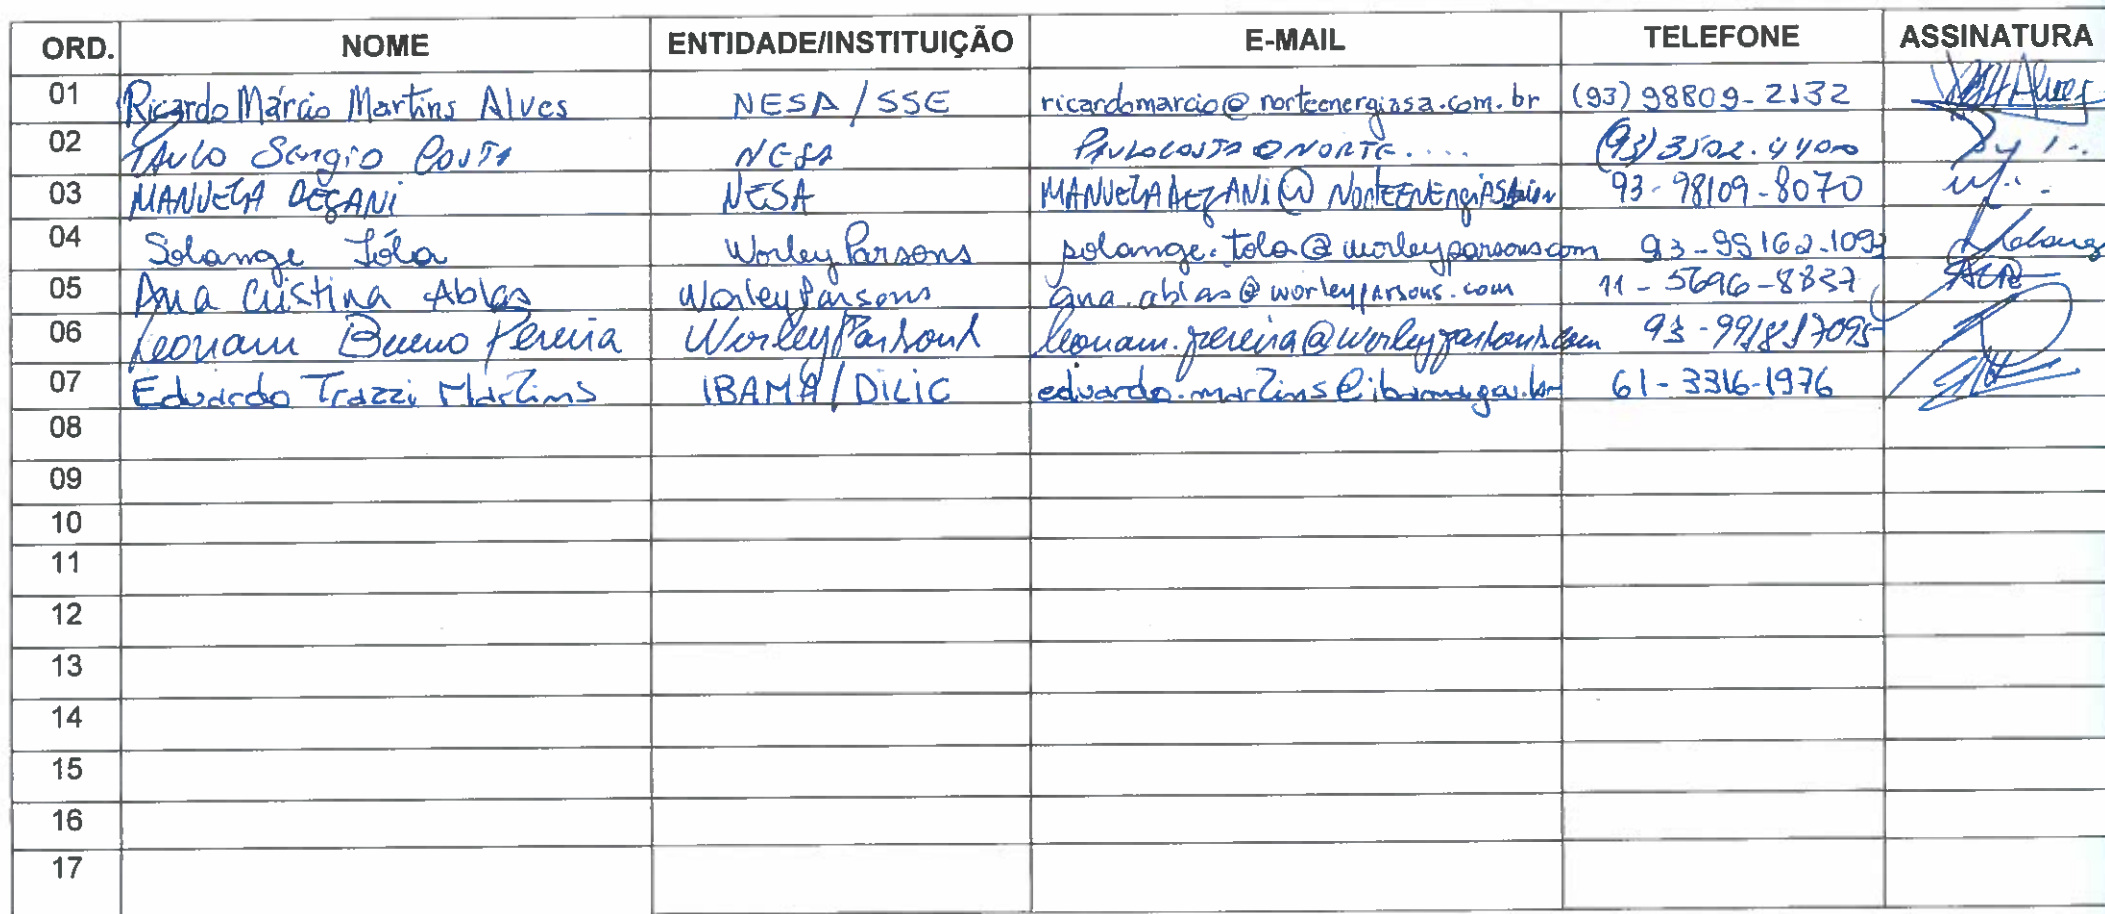 ORD. NOME ENTIDADE/INSTITUIÇÃO E-MAIL TELEFONE ASSINATURA
01 Ricardo Márcio Martins Alves NESA/SSE ricardomarcio@norteenergiasa.com.br (93) 98809-2132
02 Paulo Sergio Costa NESA PAULOCOSTA@NORTE.... (93) 3502.4400
03 MANUELA DEGANI NESA 93-98109-8070
04 Solange Tóla Worley Parsons solange.tola@worleyparsons.com
05 Ana Cristina Ablas WorleyParsons ana.ablas@worleyparsons.com 11-5696-8837
06 Leonam Bueno Pereira WorleyParsons leonam.pereira@worleyparsons.com
07 Eduardo Trazzi Martins IBAMA/DILIC eduardo.martins@ibama.gov.br 61-3316-1976
08
09
10
11
12
13
14
15
16
17